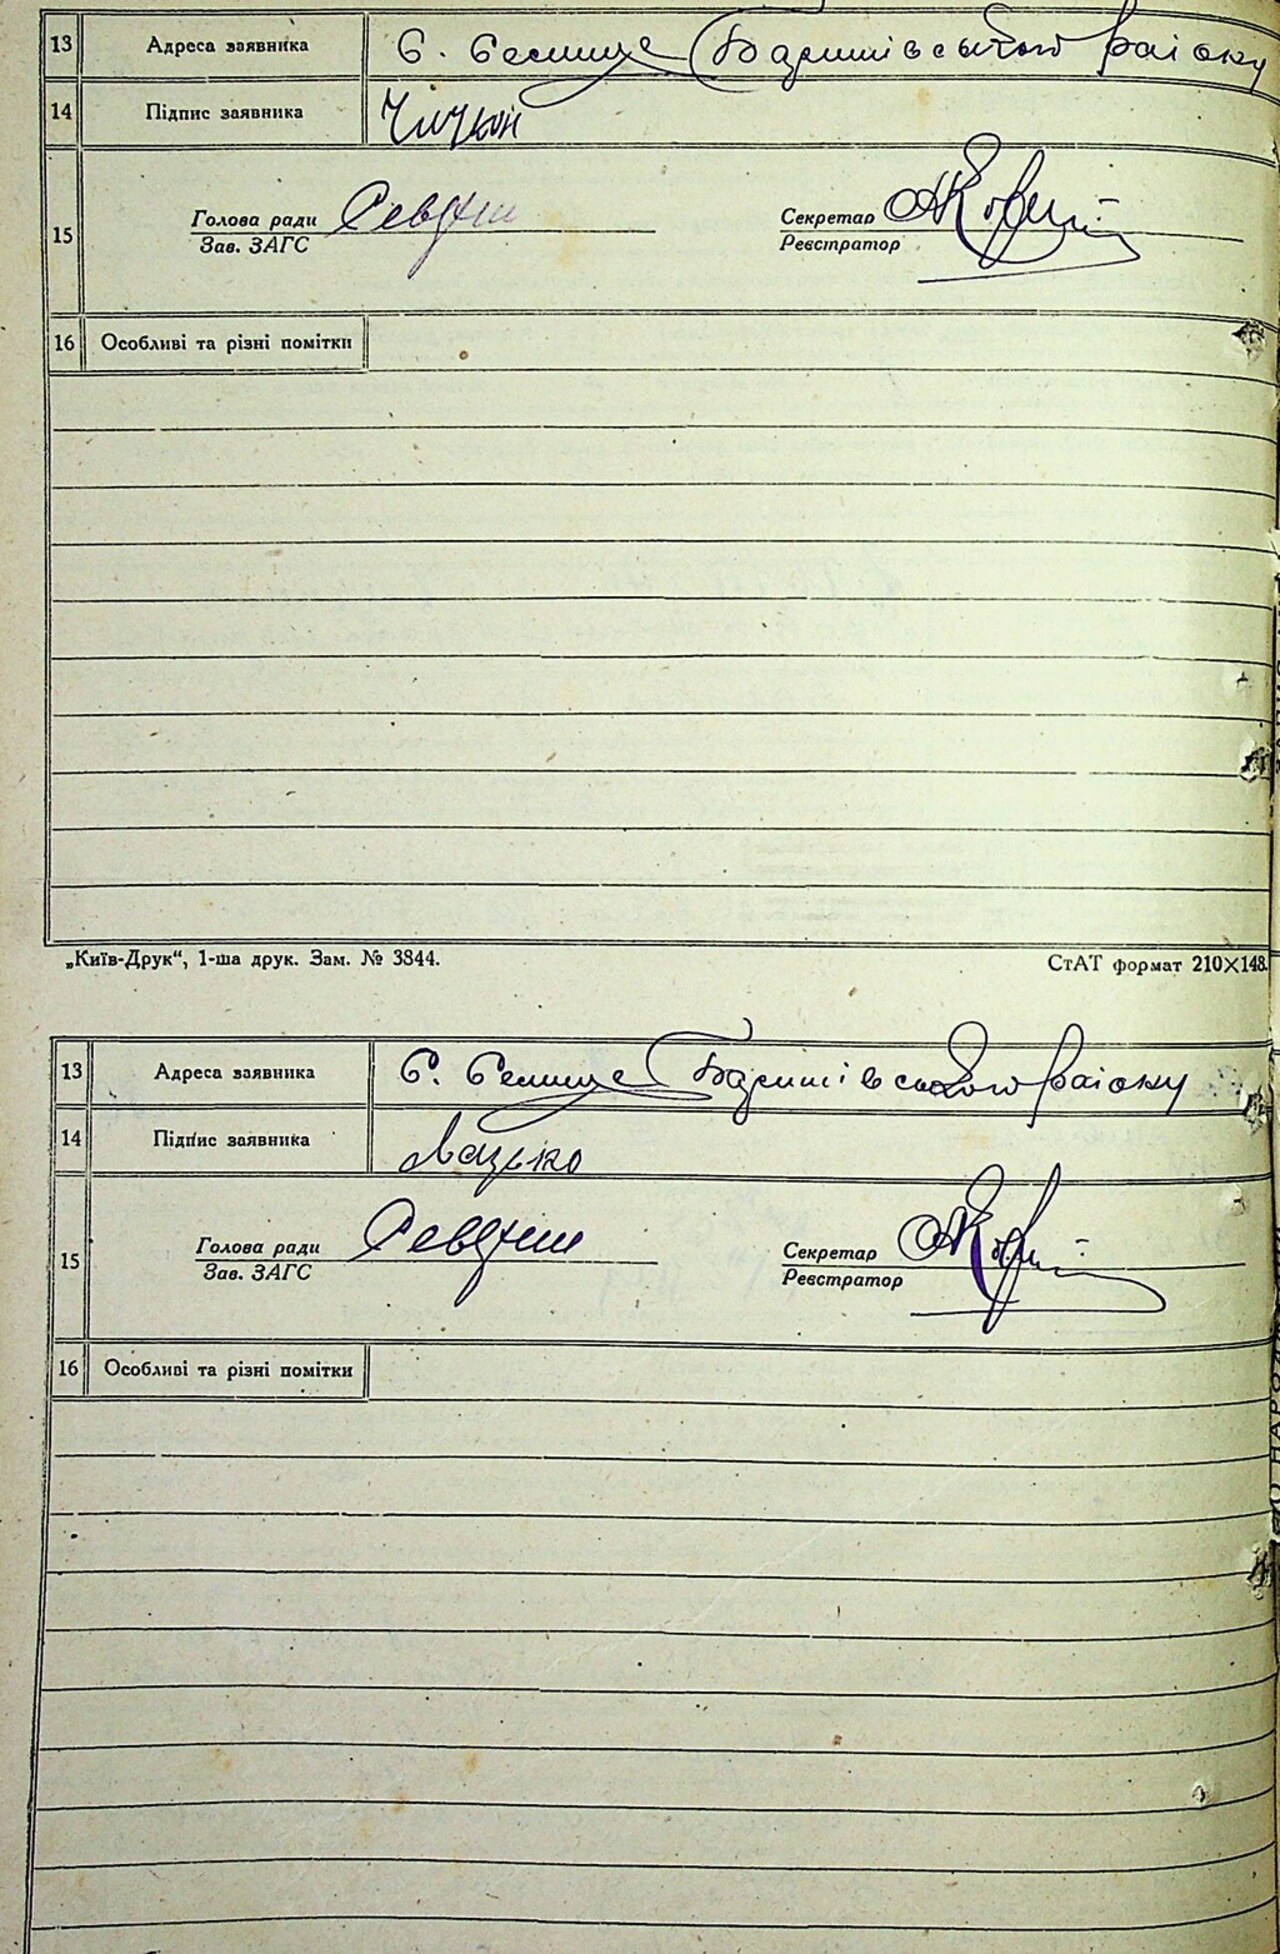 13 Адреса заявника с. Селище Баришівського району
14 Підпис заявника Чичкан
Голова ради Секретар
15
Зав. ЗАГС Реєстратор
16 Особливі та різні помітки
„Київ-Друк“, 1-ша друк. Зам. № 3844. СтАТ формат 210×148.
13 Адреса заявника с. Селище Баришівського району
14 Підпис заявника Лацько
Голова ради Секретар
15
Зав. ЗАГС Реєстратор
16 Особливі та різні помітки